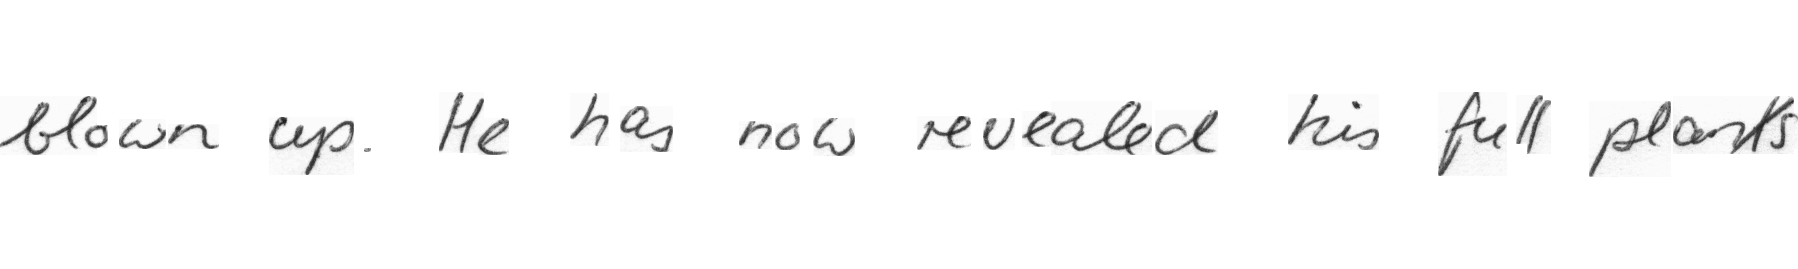 blown up. He has now revealed his full plants